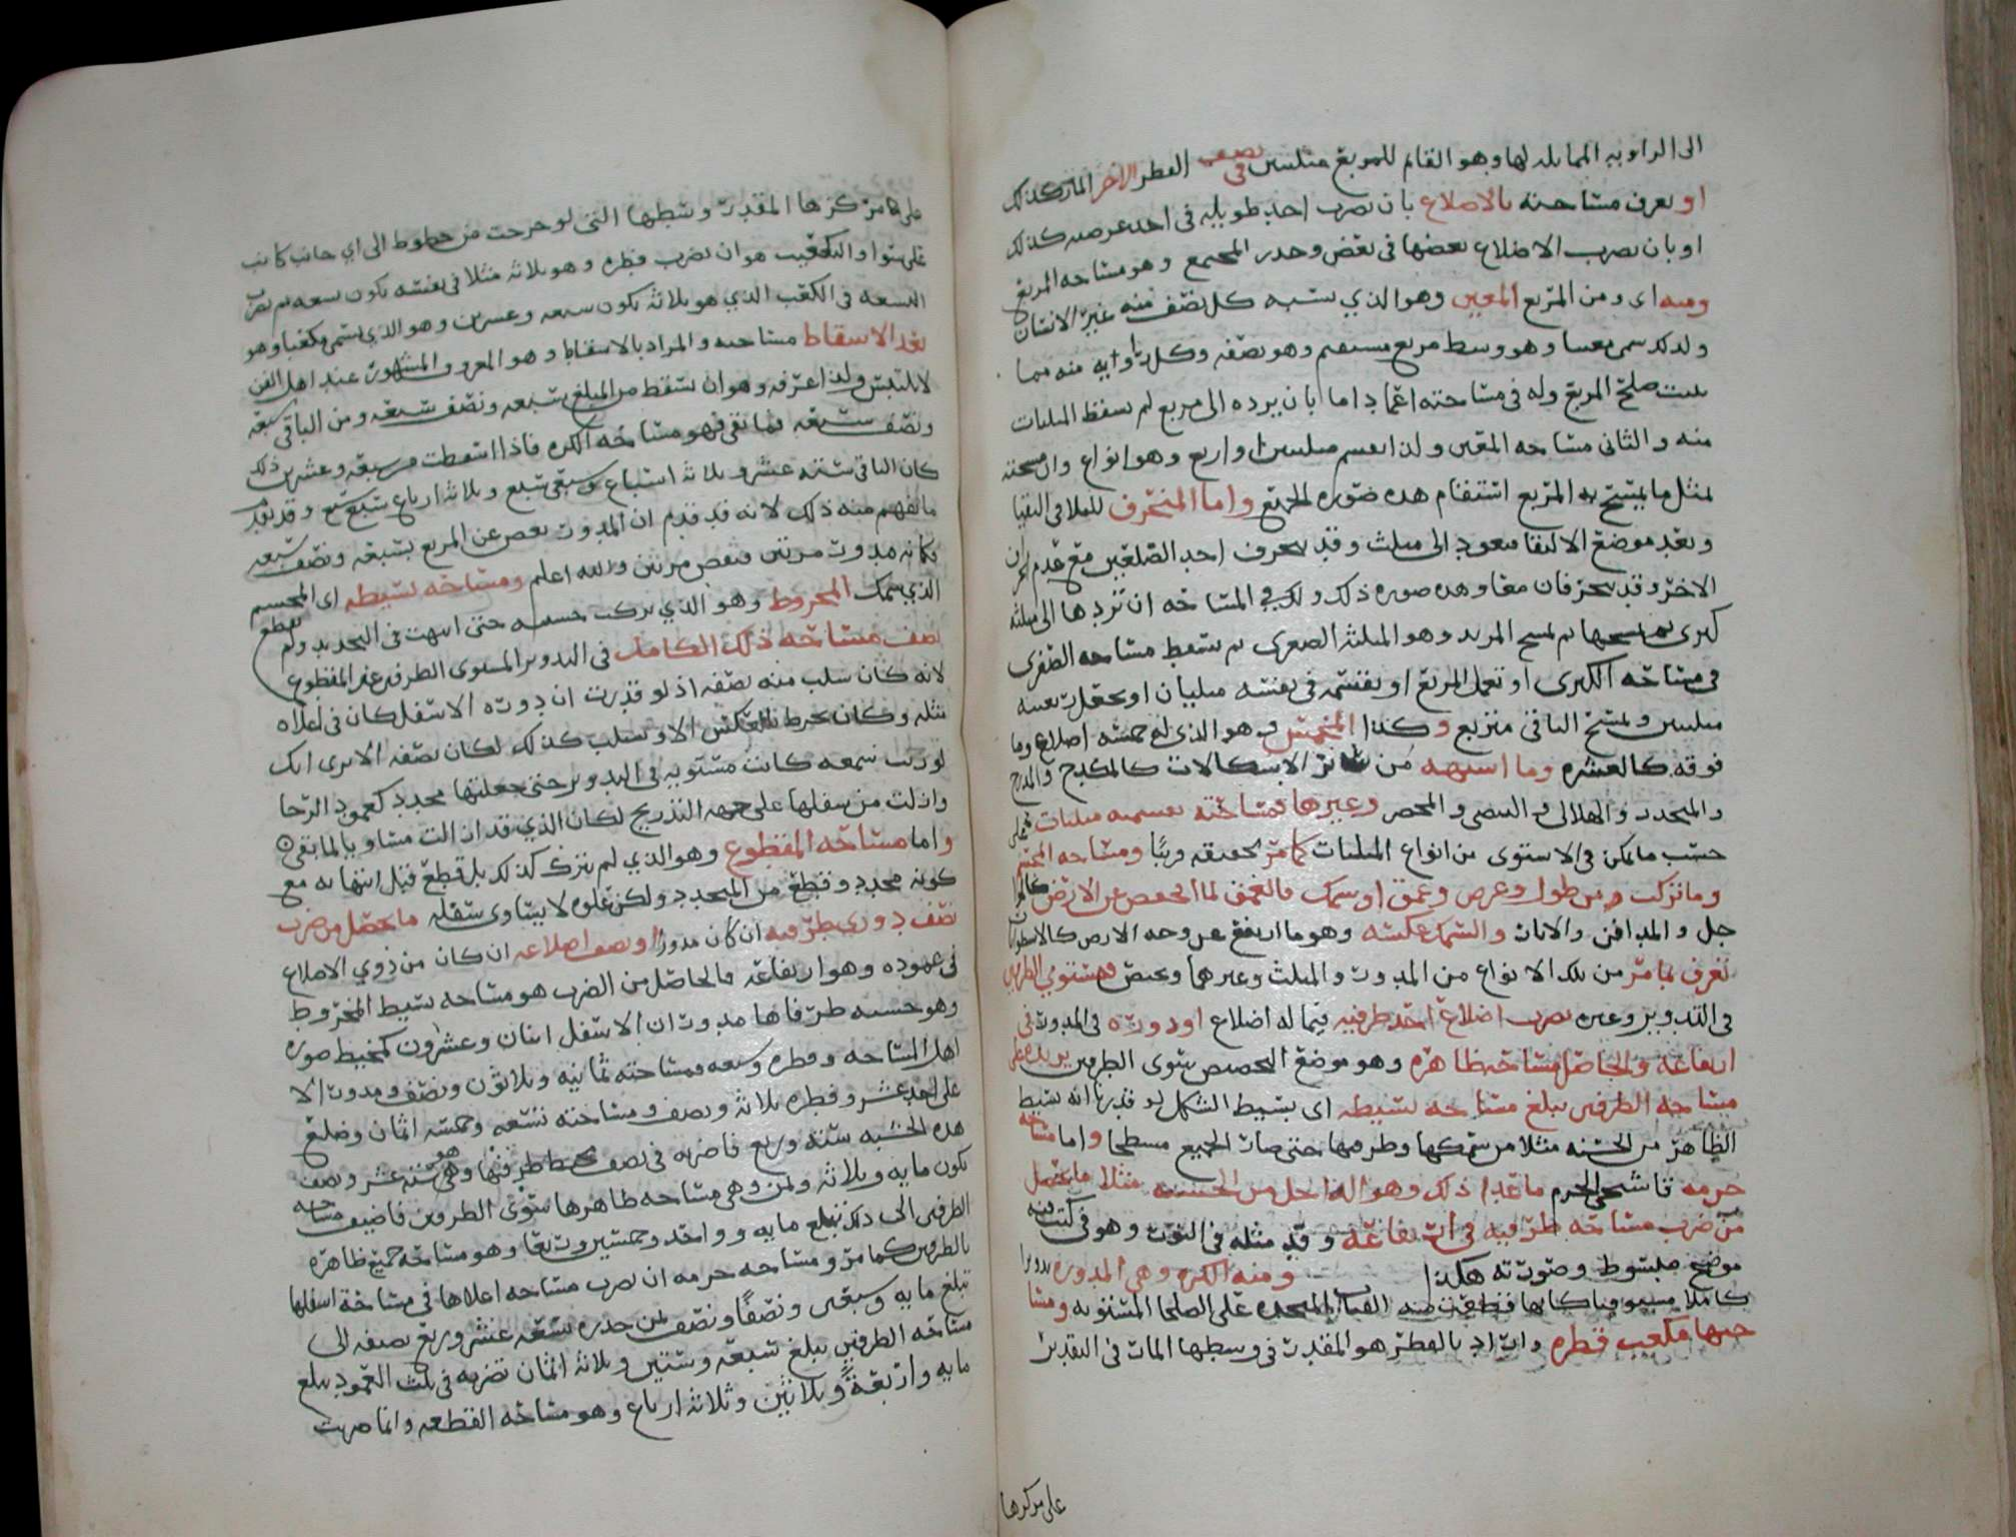 الى الزاويه المقابله لها وهو القائم للمربع مثلين في نصف القطر الاخر المار كذلك
او يعرف مساحته بالاضلاع بان يضرب احد طويليه في احد عرضيه كذلك
او بان يضرب الاضلاع بعضها في بعض وجذر المجتمع وهو مساحه المربع
ومنه اى ومن المربع المعين وهو الذي يشبه كل نصف منه عين الانسان
ولذلك سمى معينا وهو وسط مربع مستقيم وهو نصفه وكل زاويه منه مما
يلي ضلع المربع وله في مساحته اعتماد اما بان يرده الى مربع ثم يسقط المثلثات
منه والثاني مساحه المعين ولذا يقسم مثلثين او اربع وهو انواع وان مسحته
لمثل ما يمسح به المربع استقام هذه صوره الجميع واما المنحرف
وبعد موضع الالتقا فيعود الى مثلث وقد ينحرف احد الضلعين مع عدم
الاخر وقد ينحرفان معا وهذه صوره ذلك ولك في المساحه ان تردها الى مثلثه
كبرى ثم تمسحها ثم تمسح المزيد وهو المثلثه الصغرى ثم تسقط مساحه الصغرى
في مساحه الكبرى او تعمل المربع او يقسمه في نفسه مثلثان او
مثلثين وتمسح الباقي متربع وكذا المخمس وهو الذي له خمسه اضلاع وما
فوقه كالعشره وما اشبهه من سائر الاشكالات كالمكدح والمدرج
والمتحدد والهلالى والبيضي والمخصر وغيرها فمساحته بقسمته مثلثات فعلى
حسب ما يمكن في الاستوى من انواع المثلثات كما مر تحقيقه قريبا ومساحه المجسم
وما تركب من طول وعرض وعمق او سمك فالعمق لما انخفض عن الارض
جل والمدافن والابار والسمك عكسه وهو ما ارتفع عن وجه الارض كالاسطوانات
تعرف بما مر من تلك الانواع من المدور والمثلث وغيرهما ويختص مستوي الطرفين
في التدوير وغيره بضرب اضلاع احد طرفيه فيما له اضلاع او دوره في المدور في
ارتفاعه والحاصل مساحه ظاهره وهو موضع التخصيص بستوى الطرفين يزيده على
مساحه الطرفين تبلغ مساحه بسيطه اى بسيط الشكل لو قدرنا انه بسيط
الظاهر من الخشبه مثلا من سمكها وطرفيها حتى صار الجميع مسطحا واما مساحه
جرمه فاشمى الجرم ما عدا ذلك وهو الداخل من الخشبه مثلا ما يحصل
من ضرب مساحه طرفيه في ارتفاعه وقد مثله في النور وهو في كتب فيه
موضع مبسوط وصورته هكذا ومنه الكره وهي المدوره تدويرا
كاملا فقطعت منه القباب المتحده على الصلحا المشتويه ومسا
حتها مكعب قطره واراد بالقطر هو المقدر في وسطها المار في التقدير
على مركزها
على مركزها المقدر وسطها التى لو خرجت من خطوط الى اي جانب كانت
على سوا والتكعيب هو ان يضرب قطره وهو ثلاثه مثلا في نفسه يكون تسعه ثم يضرب
التسعه في الكعب الذي هو ثلاثه يكون سبعه وعشرين وهو الذي يسمى مكعبا وهو
بعد الاسقاط مساحته والمراد بالاسقاط وهو المعروف المشهور عند اهل الفن
لا يلتبس ولذا عرفه وهو ان يسقط من المبلغ سبعه ونصف سبعه ومن الباقي سبعه
ونصف سبعه فما بقى فهو مساحه الكره فاذا اسقطت من سبعه وعشرين ذلك
كان الباقي سته عشر وثلاثه اسباع وسبعى سبع وثلاثه ارباع سبع سبع وقد تقدم
ما تفهم منه ذلك لانه قد قدم ان المدور نقص عن المربع بسبعه ونصف سبعه
فكانه مدور مرتين فنقص مرتين والله اعلم ومساحه بسيطه اى المجسم
الذي سمك المخروط وهو الذي تركت خشبه حتى انتهت في التحديد ولم يقطع
نصف مساحه ذلك الكامل في التدوير المستوى الطرفين غير المقطوع
لانه كان سلب منه نصفه اذ لو قدرت ان دوره الاسفل كان في اعلاه
مثله وكان يخرط بالعكس الاول يسلب كذلك لكان نصفه الا ترى انك
لو ذبت شمعه كانت مستويه في التدوير حتى جعلتها محدد كعمود الرحا
وازلت من سفلها على جهه التدريج لكان الذي قد ازالت مساويا لما بقى
واما مساحه المقطوع وهو الذي لم يترك كذلك بل قطع قبل انتهائه مع
كونه محدد وقطع من المتحدد ولكن علوه لا يساوى سفله ما يحصل من ضرب
نصف دوري طرفيه ان كان مدورا او نصف اضلاعه ان كان من ذوي الاضلاع
في عموده وهو ارتفاعه فالحاصل من الضرب هو مساحه بسيط المخروط
وهو خشبه طرفاها مدوران الاسفل اثنان وعشرون كمحيط صوره
اهل المساحه وقطره سبعه فمساحته ثمانيه وثلاثون ونصف ومدور الا
على احد عشر وقطره ثلاثه ونصف ومساحته تسعه وخمسه اثمان وضلع
هذه الخشبه سته وربع فاضربه في نصف محيط طرفيها وهو سته عشر ونصف
يكون مايه وثلاثه وثمن وهي مساحه ظاهرها سوى الطرفين فاضيف مساحه
الطرفين الى ذلك تبلغ مايه وواحد وخمسين وربعا وهو مساحه جميع ظاهره
بالطرفين كما مر ومساحه جرمه ان تضرب مساحه اعلاها في مساحه اسفلها
تبلغ مايه وسبعين ونصفا ونصف ثمن جذره تسعه عشر وربع تضيفه الى
مساحه الطرفين تبلغ سبعه وستين وثلاثه اثمان تضربه في ثلث العمود تبلغ
مايه واربعة وثلاثين وثلاثه ارباع وهو مساحه القطعه وانما ضربت